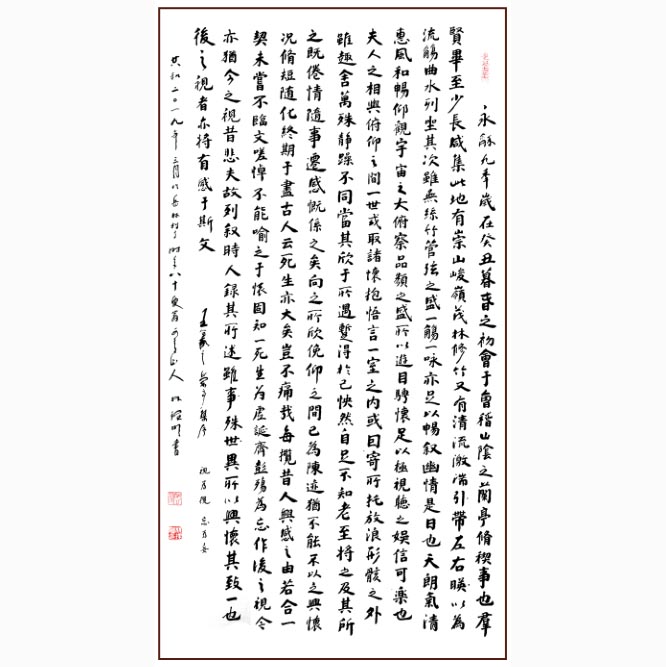 永和九年歲在癸丑暮春之初會于會稽山陰之蘭亭脩禊事也羣
賢畢至少長咸集此地有崇山峻嶺茂林修竹又有清流激湍引帶左右暎以為
流觴曲水列坐其次雖無絲竹管弦之盛一觴一詠亦足以暢叙幽情是日也天朗氣清
惠風和暢仰觀宇宙之大俯察品類之盛所以遊目騁懷足以極視聽之娛信可樂也
夫人之相與俯仰之間一世或取諸懷抱悟言一室之内或因寄所托放浪形骸之外
雖趣舍萬殊靜躁不同當其欣于所遇暫得於己怏然自足不知老至將之及其所
之既倦情隨事遷感慨係之矣向之所欣俛仰之間已為陳迹猶不能不以之興懷
況脩短隨化終期于盡古人云死生亦大矣豈不痛哉每攬昔人興感之由若合一
契未嘗不臨文嗟悼不能喻之于懷固知一死生為虛誕齊彭殤為忘作後之視今
亦猶今之視昔悲夫故列叙時人録其所述雖事殊世異所以興懷其致一也
後之視者亦将有感于斯文
王羲之蘭亭集序
二〇一九年三月